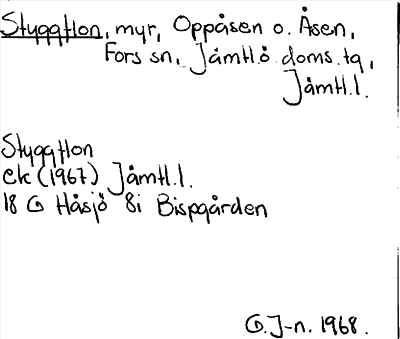 Styggflon, myr, Oppåsen o. Åsen,
Fors sn, Jämtl.ö. doms. tg,
Jämtl.l.
Styggflon
ek (1967) Jämtl.l.
18 G Håsjö 8i Bispgården
G. J-n. 1968.